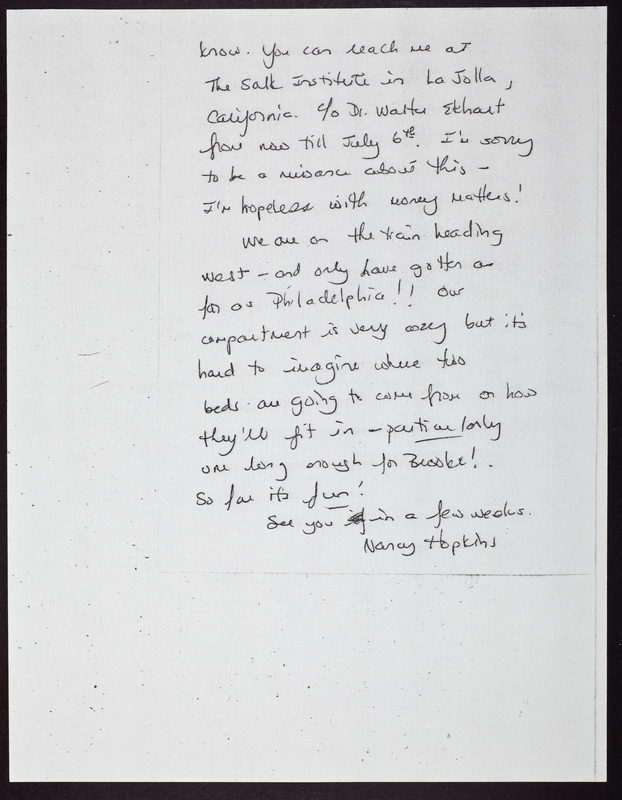 know. You can reach me at
The Salk Institute in La Jolla,
California. c/o Dr. Walter Ekhart
from now till July 6th. I'm sorry
to be a nuisance about this –
I'm hopeless with money matters!
We are on the train heading
west – and only have gotten as
far as Philadelphia!! Our
compartment is very cozy but it's
hard to imagine where two
beds are going to come from or how
they'll fit in – particularly
one long enough for Brooke!.
So far it's fun!
See you in a few weeks.
Nancy Hopkins